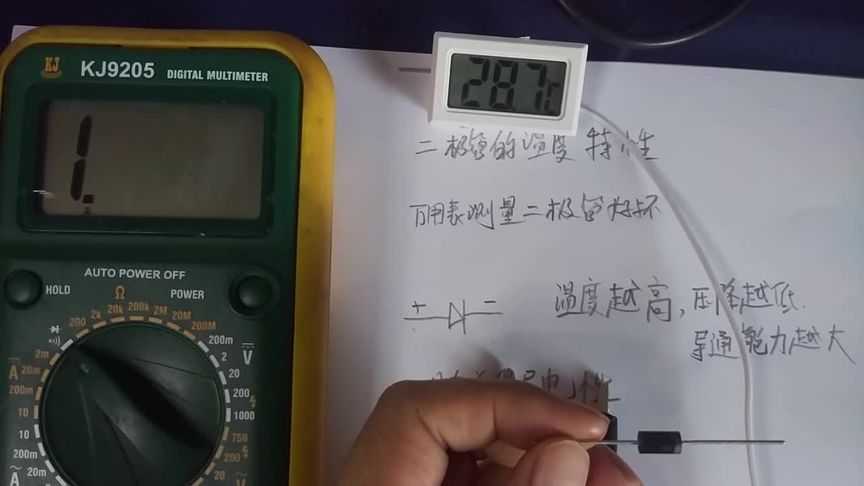 KJ
KJ9205 DIGITAL MULTIMETER
1.
28.7℃
二极管的温度特性
万用表测量二极管好坏
+ −
温度越高,压降越低.
导通能力越大
AUTO POWER OFF
HOLD
Ω
POWER
200 2k 20k 200k 2M 20M 200M
200m
2
20
200
1000
V
750
200
20
V
2m
20m
200m
10
A
10
200m
20m
A